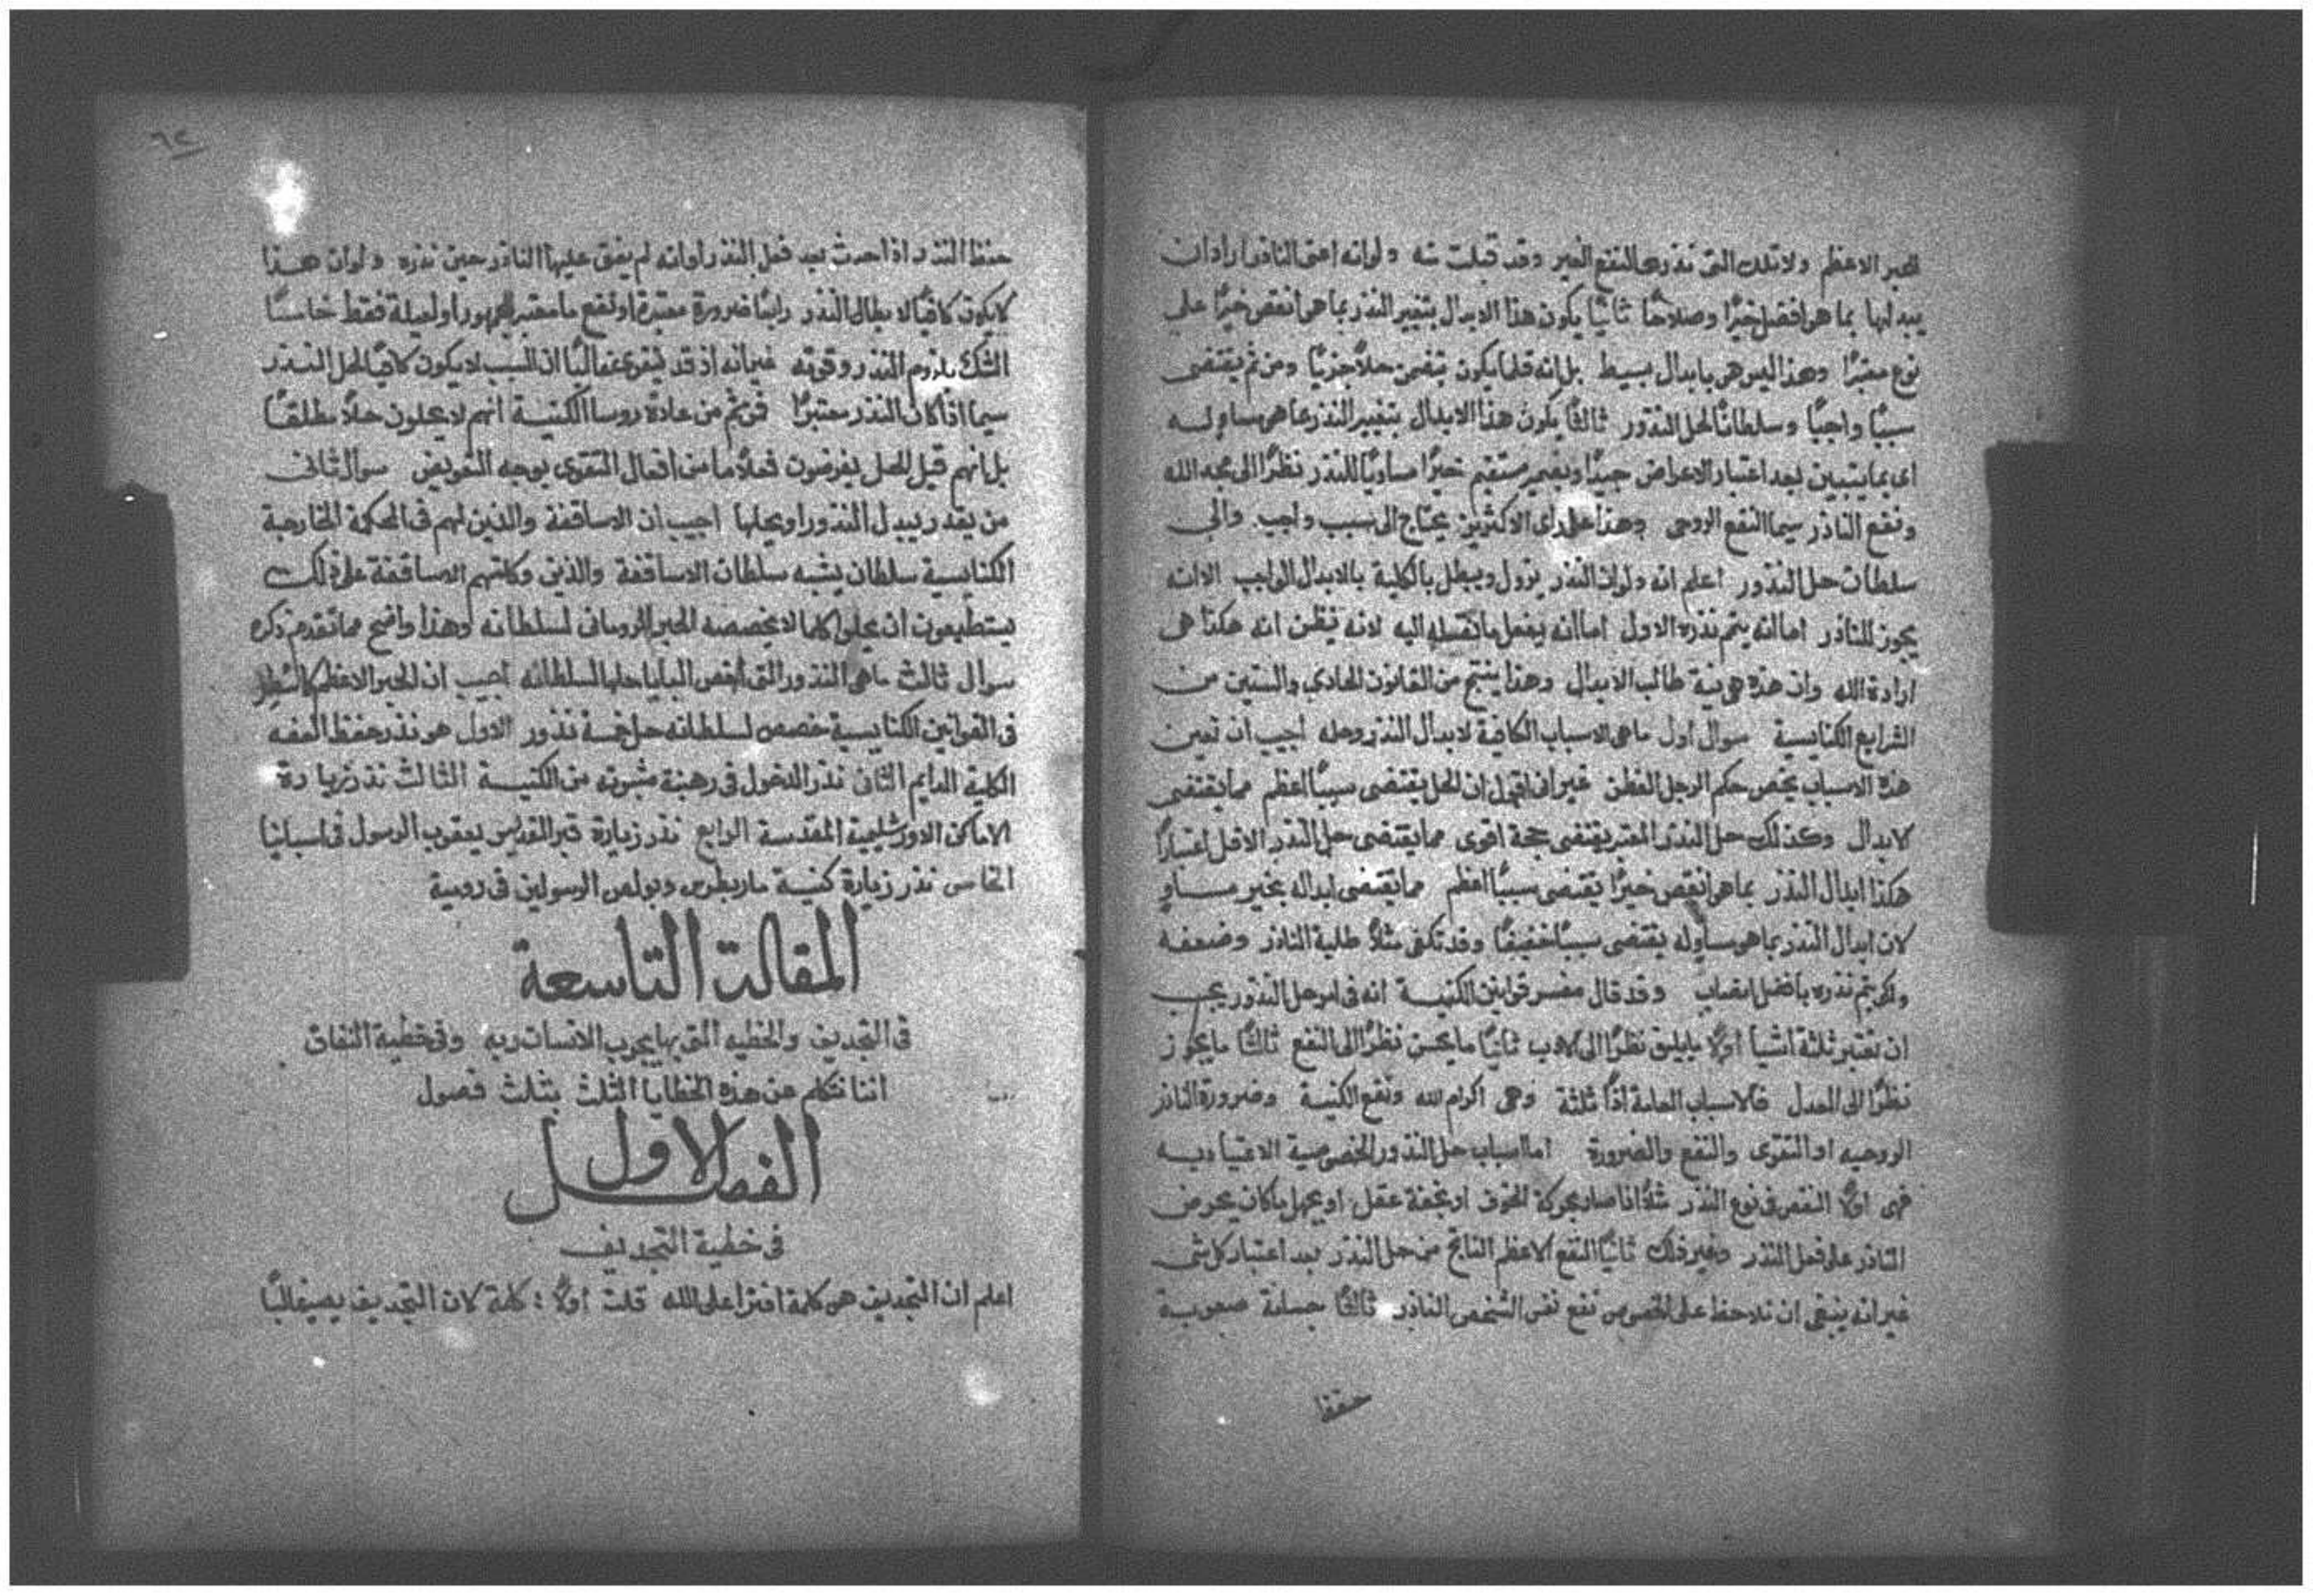 للحبر الاعظم ولا تلك التى نذرت لنفع الغير وقد قبلت منه ولو انه اعنى الناذر اراد ان
يبدلها بما هو افضل خيرًا وصلاحًا ثانيًا يكون هذا الابدال بتغيير النذر بما هو انقص خيرًا على
نوع معتبرًا وهذا ليس هو بابدال بسيط بل انه قلما يكون يتضمن حلاً جزئيًا ومن ثم يقتضى
سببًا واجبًا وسلطانًا لحل النذور ثالثًا يكون هذا الابدال بتغيير النذر بما هو مساوٍ له
اى بما يتبين بعد اعتبار الاعراض جيدًا وبضمير مستقيم خيرًا مساويًا للنذر نظرًا الى مجد الله
ونفع الناذر سيما النفع الروحى وهذا على راى الاكثرين يحتاج الى سبب واجب والى
سلطان حل النذور اعلم انه ولو ان النذر يزول ويبطل بالكلية بالابدال الواجب الا انه
يجوز للناذر اما انه يتم نذره الاول اما انه يفعل ما انتقل اليه لانه يظن انه هكذا هى
ارادة الله وان هذه هى نية طالب الابدال وهذا ينتج من القانون الحادي والستين من
الشرايع الكنايسية سوال اول ما هى الاسباب الكافية لابدال النذر وحله اجيب ان تعيين
هذه الاسباب يخص حكم الرجل الفطن غير انى اقول ان الحل يقتضى سببًا اعظم مما يقتضى
الابدال وكذلك حل النذر المعتبر يقتضى حجة اقوى مما يقتضى حل النذر الاقل اعتبارًا
هكذا ابدال النذر بما هو انقص خيرًا يقتضى سببًا اعظم مما يقتضى ابداله بخير مساوٍ
لان ابدال النذر بما هو مساوٍ له يقتضى سببًا خفيفًا وقد تكفى مثلاً طلبة الناذر وضعفه
ولكي يتم نذره بافضل وقد قال مفسر قوانين الكنيسة انه فى امر حل النذور يجب
ان نعتبر ثلثة اشيا اولاً ما يليق نظرًا الى الادب ثانيًا ما يحسن نظرًا الى النفع ثالثًا ما يجوز
نظرًا الى العدل فالاسباب العامة اذًا ثلثة وهى اكرام الله ونفع الكنيسة وضرورة الناذر
الروحيه او التقوى والنفع والضرورة اما اسباب حل النذور الخصوصية الاعتياديه
فهى اولاً النقص فى نوع النذر مثلاً اذا صار بحركة الخوف او بخفة عقل او بجهل ما كان يحرض
الناذر على فعل النذر وغير ذلك ثانيًا النفع الاعظم الناتج من حل النذر بعد اعتبار كل شى
غير انه ينبغى ان نلاحظ على الخصوص نفع نفس الشخص الناذر ثالثًا جسامة صعوبة
حفظ
٦٢
حفظ النذر اذا حدث بعد فعل النذر او انه لم يفق عليها الناذر حين نذره ولو ان هذا
لا يكون كافيًا لابطال النذر رابعًا ضرورة معتبرة او نفع ما معتبر للجمهور او لعيلة فقط خامسًا
الشك بلزوم النذر وقوته غير انه اذ قد يتفق غالبًا ان السبب لا يكون كافيًا لحل النذر
سيما اذا كان النذر معتبرًا فمن ثم من عادة روسا الكنيسة انهم لا يحلون حلاً مطلقًا
بل انهم قبل الحل يفرضون فعلاً ما من افعال التقوى بوجه التعويض سوال ثانى
من يقدر يبدل النذور او يحلها اجيب ان الاساقفة والذين لهم فى المحكمة الخارجية
الكنايسية سلطان يشبه سلطان الاساقفة والذين وكلتهم الاساقفة على ذلك
يستطيعون ان يحلوا كلما لا يخصصه الحبر الرومانى لسلطانه وهذا واضح مما تقدم ذكره
سوال ثالث ما هى النذور التى اختص البابا حلها لسلطانه اجيب ان الحبر الاعظم كما سُطر
فى القوانين الكنايسية خصص لسلطانه حل خمسة نذور الاول هو نذر حفظ العفه
الكلية الدايم الثانى نذر الدخول فى رهبنة مثبوته من الكنيسة الثالث نذر زيارة
الاماكن الاورشليمية المقدسة الرابع نذر زيارة قبر القديس يعقوب الرسول فى اسبانيا
الخامس نذر زيارة كنيسة مار بطرس وبولس الرسولين فى رومية
المقالة التاسعة
فى التجديف والخطيه التى بها يجرب الانسان ربه وفى خطية النفاق
اننا نتكلم عن هذه الخطايا الثلث بثلث فصول
الفصل الاول
فى خطية التجديف
اعلم ان التجديف هو كلمة افترا على الله قلت اولاً : كلمة لان التجديف يصير غالبًا